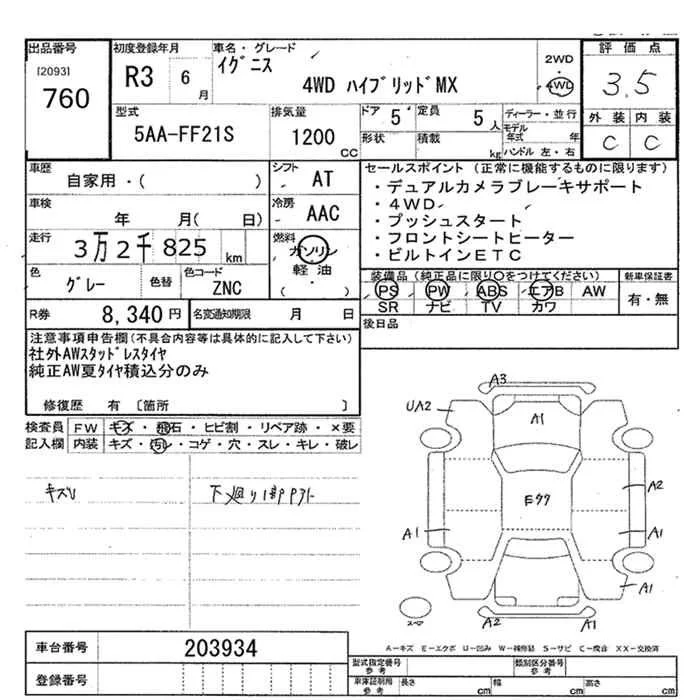 出品番号 初度登録年月 車名・グレード 評価点
[2093] イグニス 2WD
760 R3 6月 4WD ハイブリッドMX 4WD 3.5
型式 排気量 ドア 定員 ディーラー・並行 外装 内装
5AA-FF21S 1200CC 5 5人 モデル年式 年 C C
形状 積載 kg ハンドル 左・右
車歴 シフト セールスポイント (正常に機能するものに限ります)
自家用・( ) AT ・デュアルカメラブレーキサポート
車検 冷房 ・4WD
年 月( 日) AAC ・プッシュスタート
走行 燃料 ・フロントシートヒーター
3万2千825km ガソリン ・ビルトインETC
軽油
色 色替 色コード ( ) 装備品 (純正品に限り○をつけてください) 新車保証書
グレー ZNC PS PW ABS エアB AW 有・無
R券 8,340円 名変通知期限 月 日 SR ナビ TV カワ
後日品
注意事項申告欄(不具合内容等は具体的に記入して下さい)
社外AWスタッドレスタイヤ
純正AW夏タイヤ積込分のみ
修復歴 有 [箇所 ]
検査員 FW キズ・飛石・ヒビ割・リペア跡・×要
記入欄 内装 キズ・汚れ・コゲ・穴・スレ・キレ・破レ
A3
UA2 A1
A2
A1 A1
A1
A2 A1
A-キズ E-エクボ U-凹み W-補修跡 S-サビ C-腐食 XX-交換済
車台番号 203934
登録番号
型式指定番号 参考 類別区分番号 参考
車庫証明用 参考 長さ cm 幅 cm 高さ cm